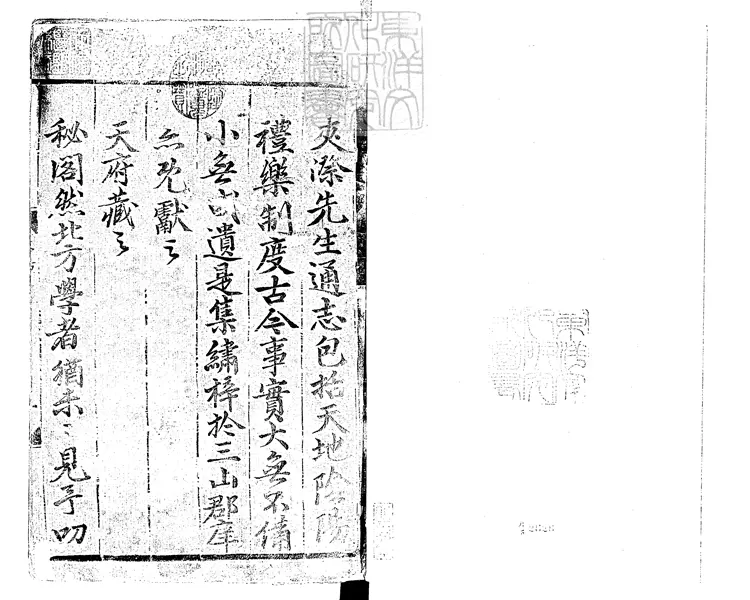 夾漈先生通志包括天地陰陽
禮樂制度古今事實大無不備
小無或遺是集繡梓於三山郡庠
亦既獻之
天府藏之
秘閣然北方學者猶未之見予叨